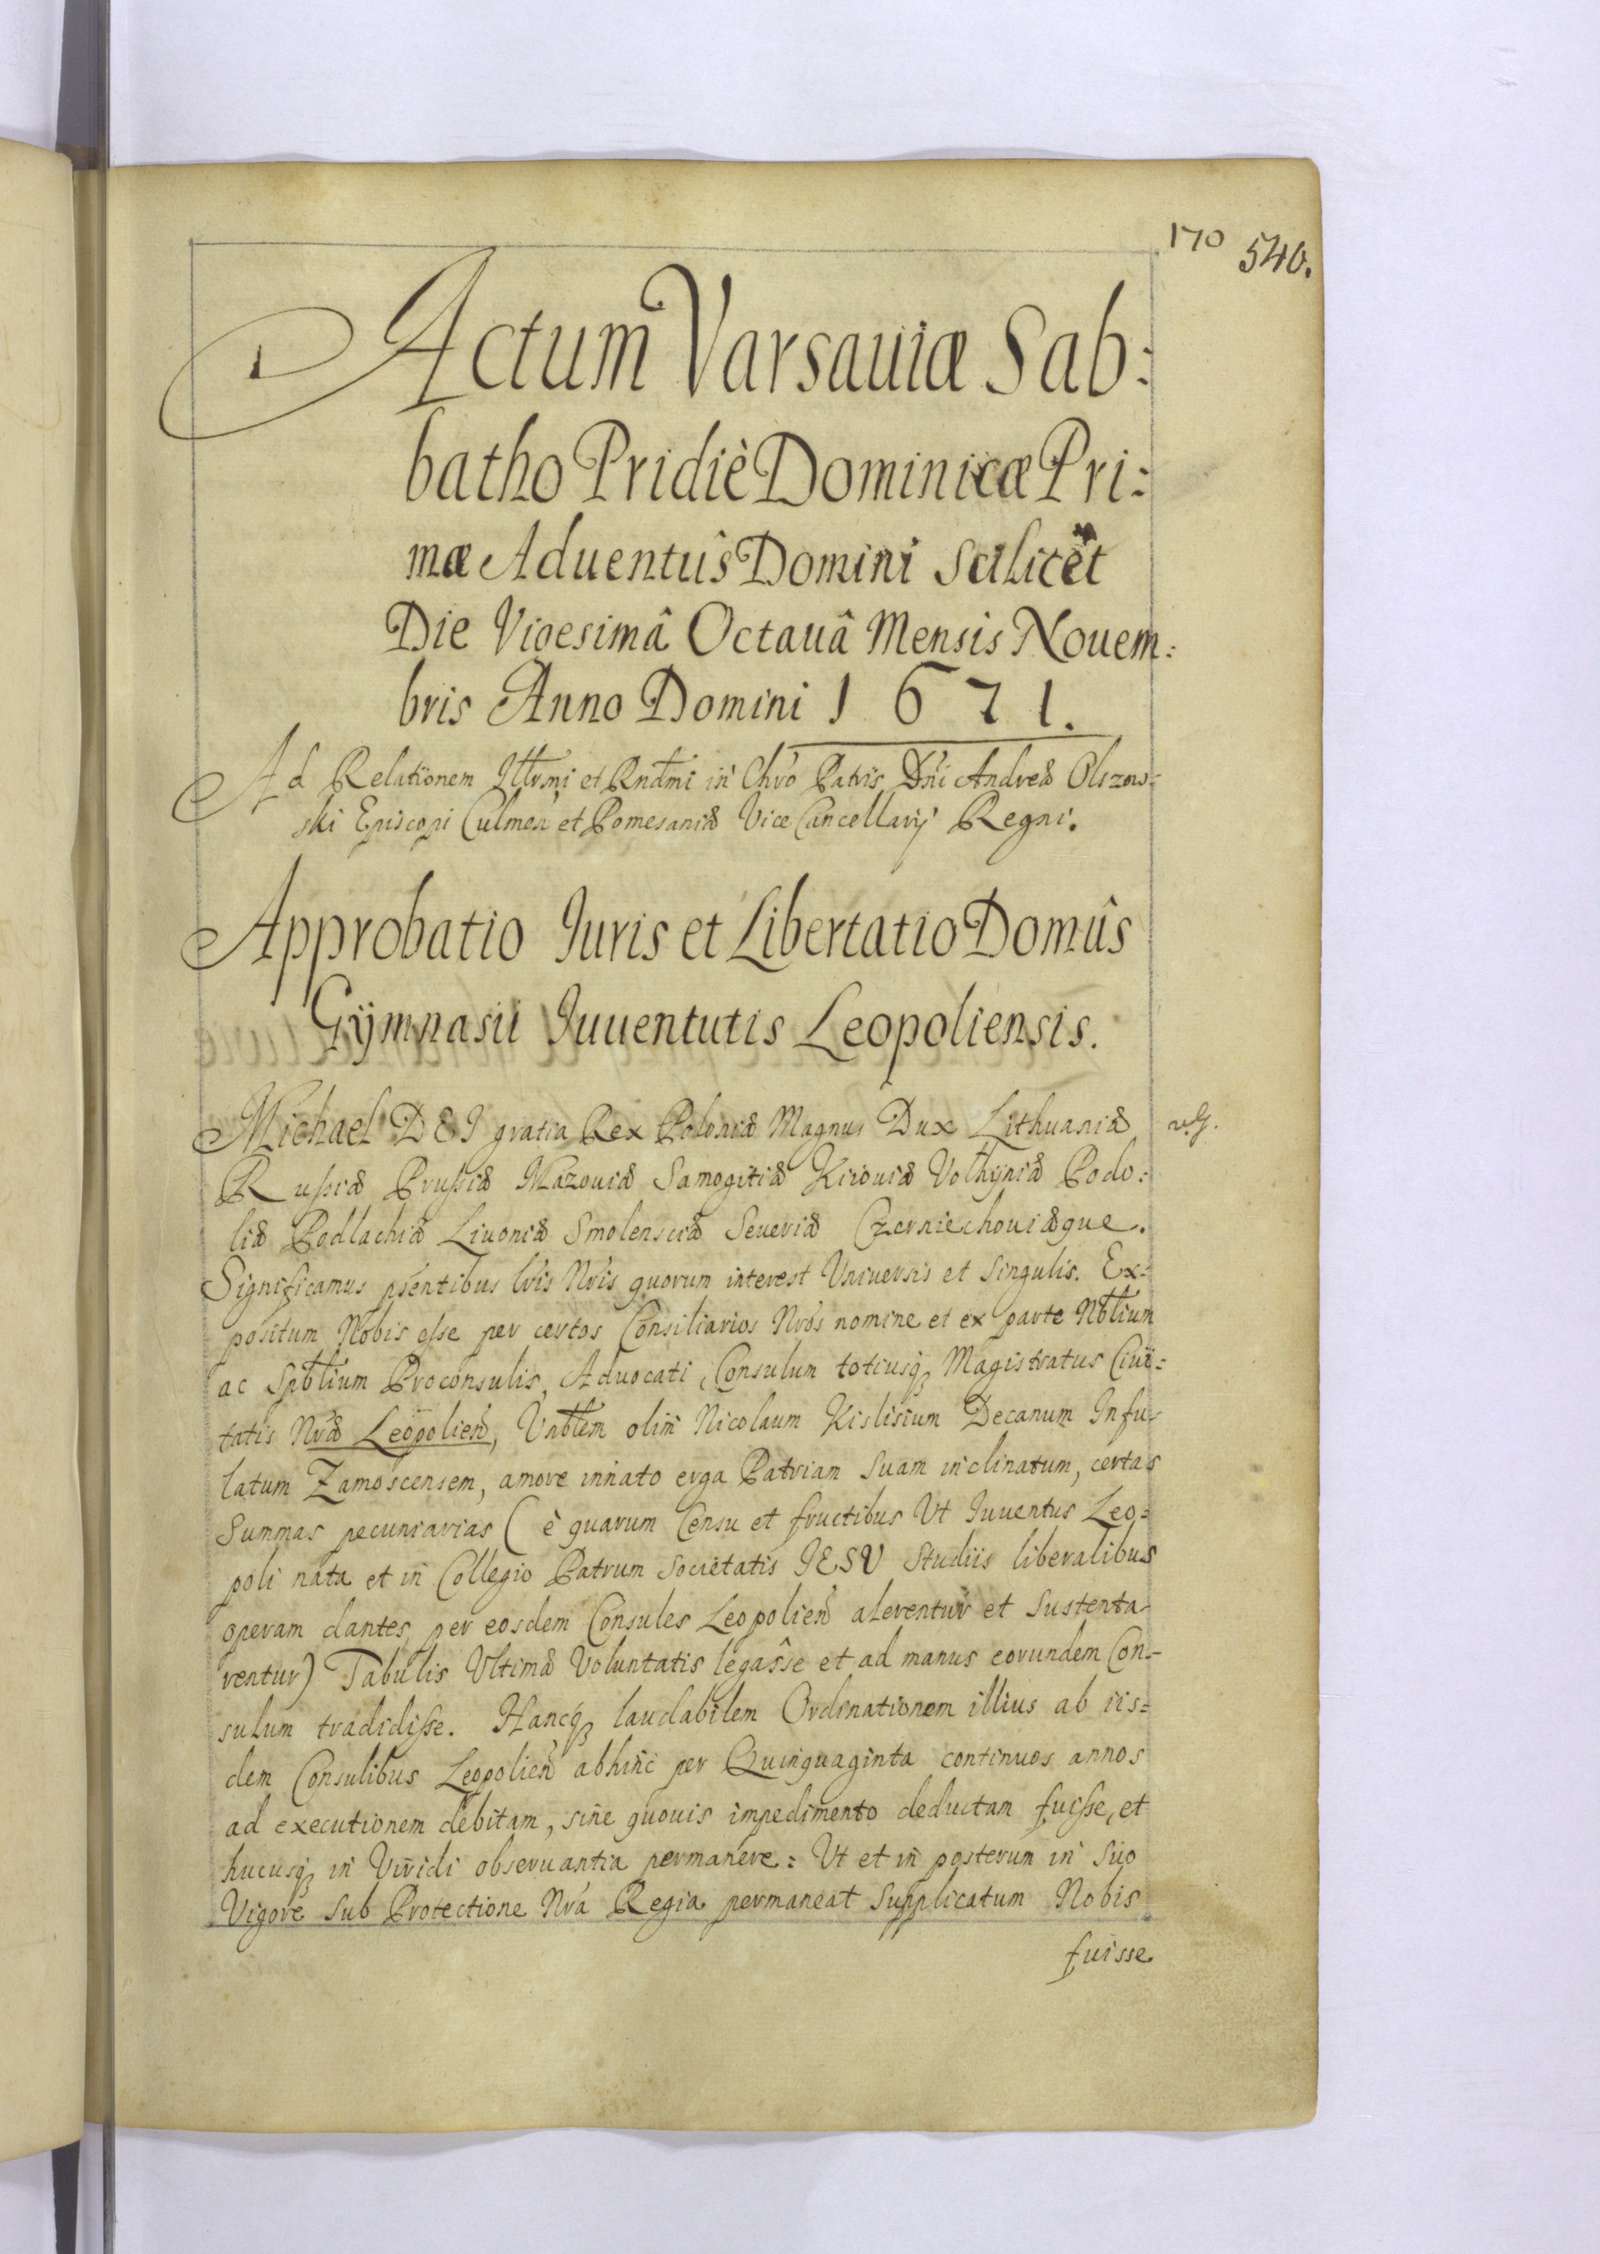 170 540.
Actum Varsauiæ Sab:
batho Pridiè Dominicæ Pri:
mæ Aduentûs Domini Scilicèt
Die Vigesimâ Octauâ Mensis Nouem:
bris Anno Domini 1671.
Ad Relationem Illrmi et Rndmi in Chro Patris Dni Andreæ Olszow:
ski Episcopi Culmen et Pomesaniæ Vice Cancellarij Regni.
Approbatio Iuris et Libertatio Domûs
Gÿmnasii Iuuentutis Leopoliensis.
Michael DEI gratia Rex Poloniæ Magnus Dux Lithuaniæ
Russiæ Prussiæ Mazouiæ Samogitiæ Kiiouiæ Volhÿniæ Podo:
liæ Podlachiæ Liuoniæ Smolensciæ Seueriæ Czerniechouiæque.
Significamus pśentibus lris Nris quorum interest Vniuersis et Singulis. Ex:
positum Nobis esse per certos Consiliarios Nros nomine et ex parte Nblium
ac Spblium Proconsulis, Aduocati, Consulum totiusq; Magistratus Ciui:
tatis Nræ Leopolien, Vnblem olim Nicolaum Kislisium Decanum Infu-
latum Zamoscensem, amore innato erga Patriam Suam inclinatum, certas
Summas pecuniarias (è quarum Censu et fructibus Vt Iuuentus Leo:
poli nata et in Collegio Patrum Societatis IESV Studiis liberalibus
operam dantes per eosdem Consules Leopolien alerentur et Sustenta-
rentur) Tabulis Vltimæ Voluntatis legâsse et ad manus eorundem Con-
sulum tradidisse. Hancq; laudabilem Ordinationem illius ab iis:
dem Consulibus Leopolien abhinc per Quinquaginta continuos annos
ad executionem debitam, sine quouis impedimento deductam fuisse, et
hucusq; in Viridi obseruantia permanere: Vt et in posterum in Suo
Vigore Sub Protectione Nra Regia permaneat Supplicatum Nobis
fuisse